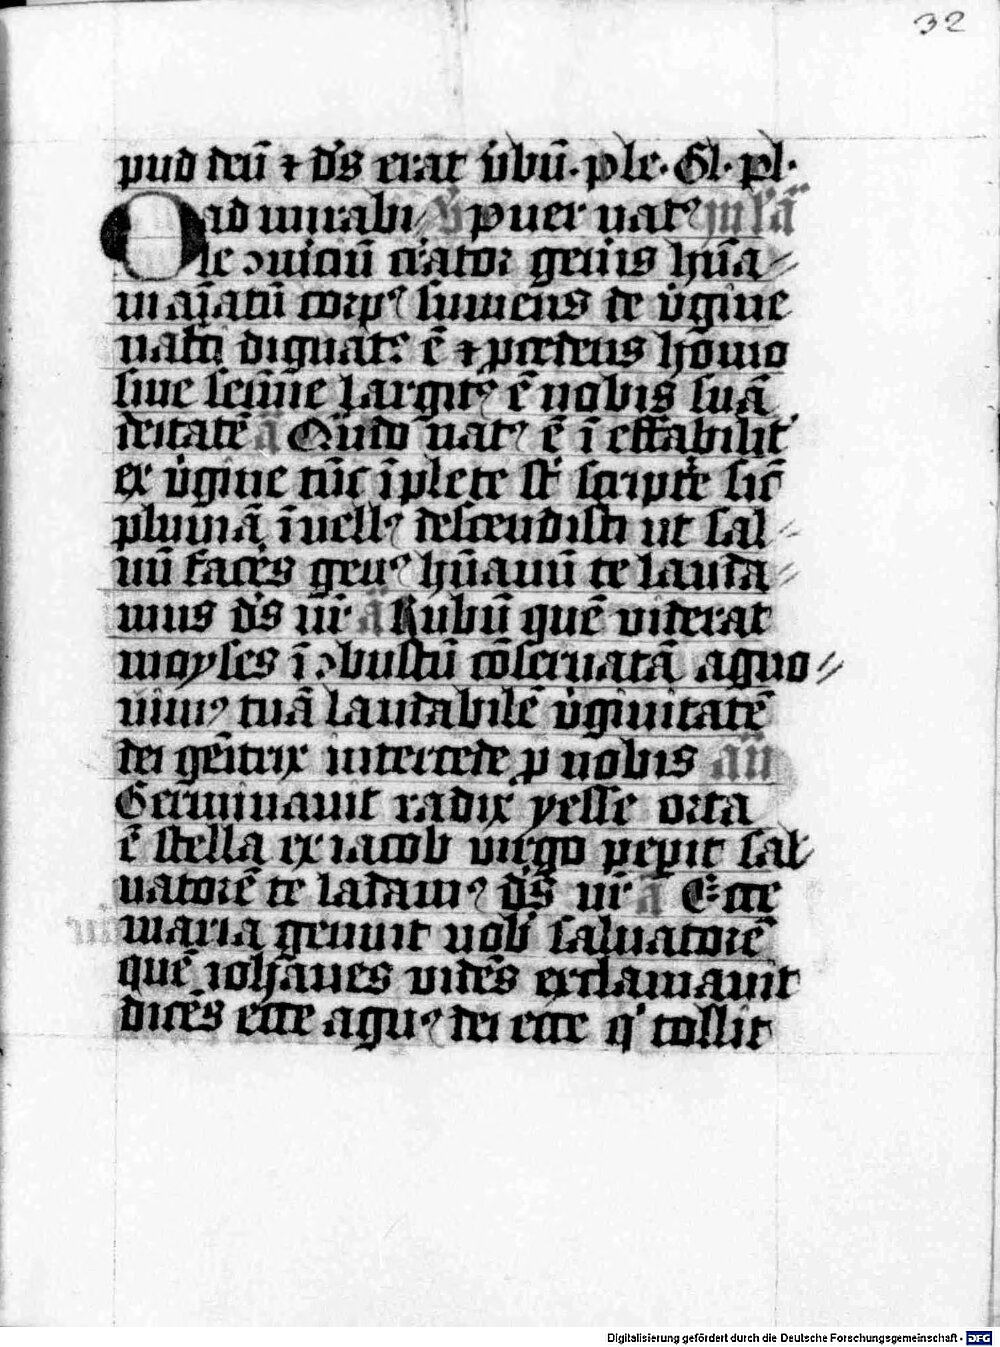 32
pud deū ⁊ ds erat ỽbū · ple · Gl · pl ·
ad mirabi V puer nat⁹ In lā
O ꝯm̄ciū creator gen̄is hūa
maīatū corp⁹ sumens de v̓gine
nasci dignat⁹ ē ⁊ ꝓcedens homo
sine semīe largit⁹ ē nobis suā
deitatē ā Qn̄do nat⁹ ē ī effabilit̓
ex v̓gine tūc īplete st̄ scͥpt̓e sic̄
pluuiā ī vell⁹ descendisti ut sal
uū faces gen⁹ hūanū te lauda
mus ds nr̄ ā Rubū quē viderat
moyses ī ꝯbustū cōseruatā agno
uim⁹ tuā laudabilē v̓ginitatē
dei gēitrix intercede ꝓ nobis an̄
Germinauit radix yesse orta
ē stella ex iacob virgo pepit sal
uatorē te ladam⁹ ds̄ nr̄ ā Ecce
maria genuit nob̓ saluatorē
quē ioh̄anes vidēs exclamauit
dicēs ecce agn⁹ dei ecce qͥ tollit
Digitalisierung gefördert durch die Deutsche Forschungsgemeinschaft - DFG